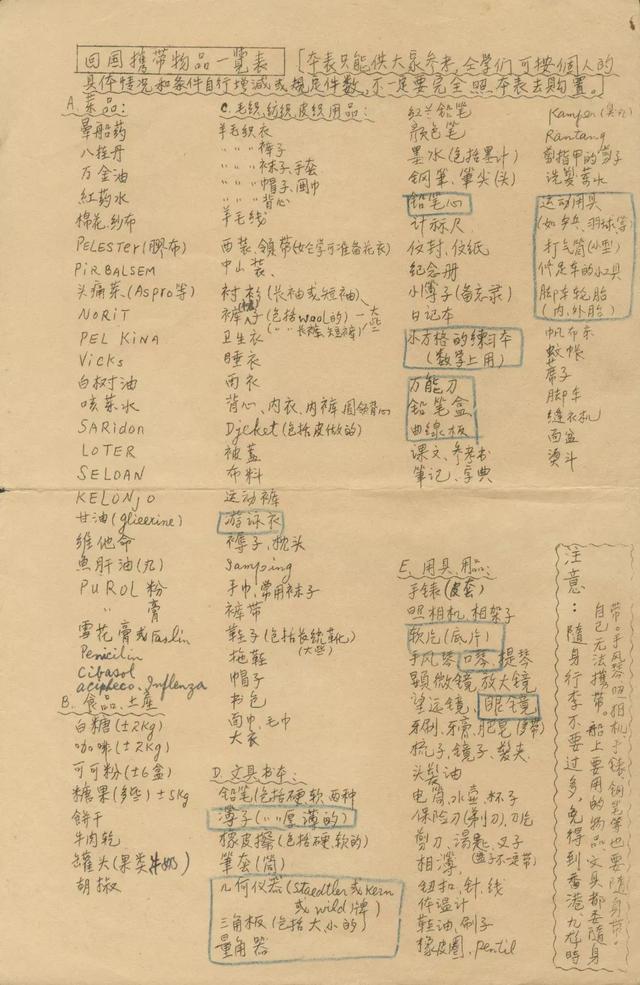 回国攜带物品一覽表 [本表只能供大家参考,仝学们可按個人的
具体情况和条件自行增减或規定件数,不一定要完全照本表去购置。]
A. 菜品:
暈船药
八挂丹
万金油
紅药水
棉花.纱布
PELESTER(膠布)
PiRBALSEM
头痛药.(Aspro等)
NORiT
PEL KiNA
Vicks
白树油
咳药水
SARidon
LOTER
SELOAN
KELONJO
甘油(glieerine)
維他命
魚肝油(丸)
PUROL 粉
〃 膏
雪花膏或Vaslin
Penicilin
Cibasol
acipheco.Inflenza
B. 食品.土産
白糖(±2Kg)
咖啡(±2Kg)
可可粉(±6盒)
糖果(多些)±5Kg
餅干
牛肉乾
罐头(果类牛奶)
胡椒
C. 毛织.纺织.皮织用品:
羊毛织衣
〃 〃 〃 裤子
〃 〃 〃 袜子.手套
〃 〃 〃 帽子.围巾
〃 〃 〃 背心
羊毛线
西装.領带(女仝学可准备花衣)
中山装.
衬衫(長袖或短袖)
裤子(包括wool的)一大些
(〃 〃 長裤.短裤)
卫生衣
睡衣
雨衣
背心、内衣、内裤
Djcket(包括皮做的)
被蓋
布料
运动裤
游泳衣
褥子.枕头
Samping
手巾.常用袜子
裤带
鞋子(包括長统靴)
(大些)
拖鞋
帽子
书包
面巾.毛巾
大衣
D. 文具书本:
鉛笔(包括硬.软两种
薄子(〃 〃厚薄的)
橡皮擦(包括硬.软的)
筆套(筒)
几何仪器(Staedtler或Kern
或wild牌)
三角板(包括大小的)
量角器
紅兰鉛笔
顔色笔
墨水(包括墨汁)
钢筆.筆尖(头)
鉛笔心
计祘尺
伩封.伩纸
纪念册
小薄子(备忘录)
日记本
小方格的練习本
(数学上用)
万能刀
鉛笔盒
曲線板
課文.参考书
筆记.字典
E. 用具.用品:
手錶(皮套)
照相机.相架子
软片(底片)
手风琴.口琴.提琴
顕微镜.放大镜
望远镜.眼镜
牙刷.牙膏.肥皂
梳子.镜子.髪夹
头髪油
电筒.水壶.杯子
保险刀(剃刀).刀片
剪刀.湯匙.叉子
相薄.
钮扣.針.线
体温计
鞋油.刷子
橡皮圈.pentil
Kamper
Rantang
剪指甲的剪子
洗髪药水
运动用具
(如乒兵.羽球等)
打气筒(小型)
修足车的工具
脚车轮胎
(内.外胎)
帆布床
蚊帐
蓆子
脚车
缝衣机
面盆
燙斗
注意:隨身行李不要过多,免得到香港.九龙時
自己无法攜带。船上要用的物品.文具都要隨身
带。手风琴.照相机.手錶.钢笔等也要隨身带。